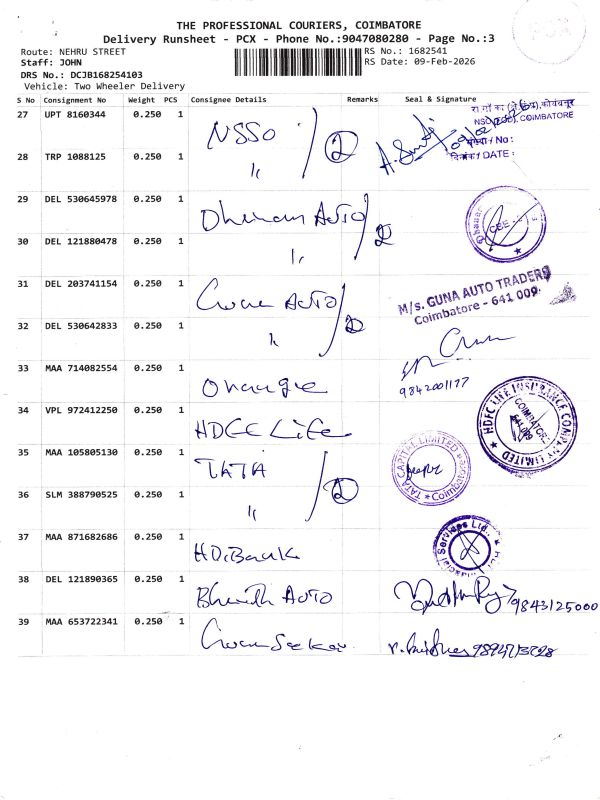 THE PROFESSIONAL COURIERS, COIMBATORE
Delivery Runsheet - PCX - Phone No.:9047080280 - Page No.:3
PCX
Route: NEHRU STREET
RS No.: 1682541
Staff: JOHN
RS Date: 09-Feb-2026
DRS No.: DCJB168254103
Vehicle: Two Wheeler Delivery
S No Consignment No Weight PCS Consignee Details Remarks Seal & Signature
27 UPT 8160344 0.250 1 NSSO 2
COIMBATORE
/ No :
दिनांक / DATE :
28 TRP 1088125 0.250 1 "
29 DEL 530645978 0.250 1 Auto 2
30 DEL 121880478 0.250 1 "
31 DEL 203741154 0.250 1 Auto 2
M/s. GUNA AUTO TRADERS
Coimbatore - 641 009.
32 DEL 530642833 0.250 1 "
33 MAA 714082554 0.250 1 Orange
9842001177
34 VPL 972412250 0.250 1 HDFC Life
HDFC LIFE INSURANCE COMPANY LIMITED
COIMBATORE
641 009
35 MAA 105805130 0.250 1 TATA 2
TATA CAPITAL LIMITED
Coimbatore
36 SLM 388790525 0.250 1 "
37 MAA 871682686 0.250 1
Services Ltd.
38 DEL 121890365 0.250 1 Auto
9843125000
39 MAA 653722341 0.250 1